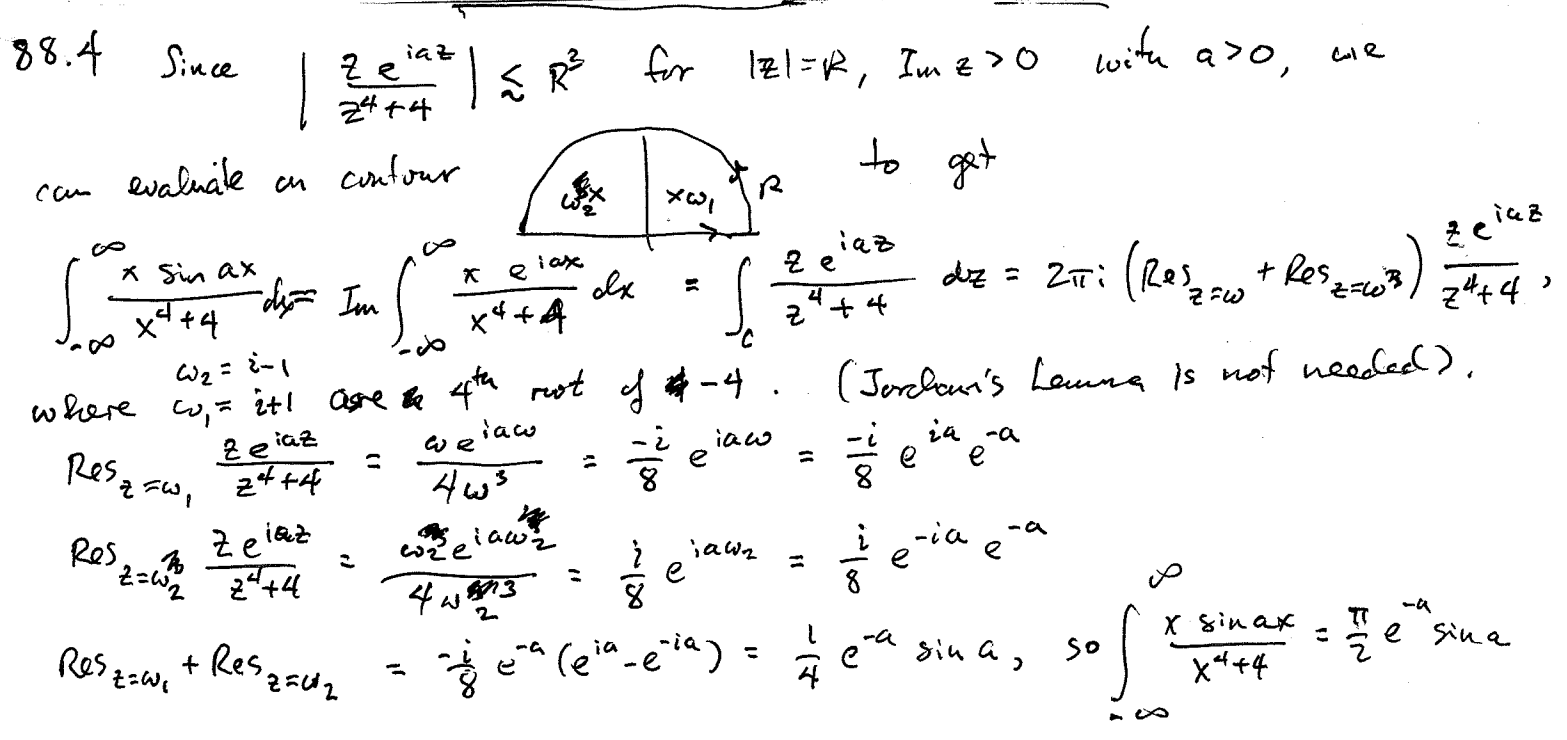 88.4 Since | z e^{iaz} / (z^4+4) | ≲ R^3 for |z|=R, Im z>0 with a>0, we
can evaluate on contour to get
ω_2 x xω_1 R
∫_{-∞}^{∞} x sin ax / (x^4+4) dx = Im ∫_{-∞}^{∞} x e^{iax} / (x^4+4) dx = ∫_C z e^{iaz} / (z^4+4) dz = 2πi (Res_{z=ω} + Res_{z=ω^3}) z e^{iaz} / (z^4+4),
where ω_2 = i-1 ω_1 = i+1 are 4th root of -4. (Jordan's Lemma is not needed).
Res_{z=ω_1} z e^{iaz} / (z^4+4) = ω e^{iaω} / 4ω^3 = -i/8 e^{iaω} = -i/8 e^{ia} e^{-a}
Res_{z=ω_2} z e^{iaz} / (z^4+4) = ω_2 e^{iaω_2} / 4ω_2^3 = i/8 e^{iaω_2} = i/8 e^{-ia} e^{-a}
Res_{z=ω_1} + Res_{z=ω_2} = -i/8 e^{-a} (e^{ia} - e^{-ia}) = 1/4 e^{-a} sin a, so ∫_{-∞}^{∞} x sin ax / (x^4+4) = π/2 e^{-a} sin a